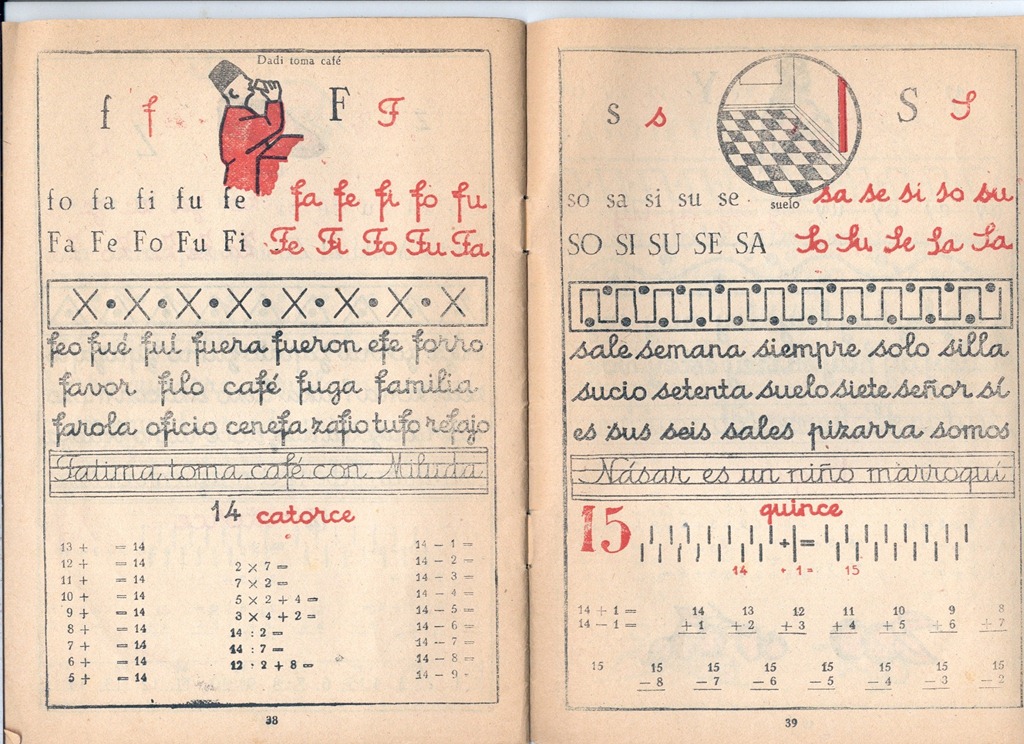 Dadi toma café
f f F F
fo fa fi fu fe fa fe fi fo fu
Fa Fe Fo Fu Fi Fe Fi Fo Fu Fa
feo fué fuí fuera fueron efe forro
favor filo café fuga familia
farola oficio cenefa zafio tufo refajo
Fatima toma café con Miluda
14 catorce
13 + = 14
12 + = 14
11 + = 14
10 + = 14
9 + = 14
8 + = 14
7 + = 14
6 + = 14
5 + = 14
2 × 7 =
7 × 2 =
5 × 2 + 4 =
3 × 4 + 2 =
14 : 2 =
14 : 7 =
12 : 2 + 8 =
14 — 1 =
14 — 2 =
14 — 3 =
14 — 4 =
14 — 5 =
14 — 6 =
14 — 7 =
14 — 8 =
14 — 9 -
38
s s S S
suelo
so sa si su se sa se si so su
SO SI SU SE SA So Su Se Sa Sa
sale semana siempre solo silla
sucio setenta suelo siete señor sí
es sus seis sales pizarra somos
Násar es un niño marroquí
15 quince
+ =
14 + 1 = 15
14 + 1 =
14 — 1 =
14 13 12 11 10 9 8
+ 1 + 2 + 3 + 4 + 5 + 6 + 7
15 15 15 15 15 15 15 15
— 8 — 7 — 6 — 5 — 4 — 3 — 2
39